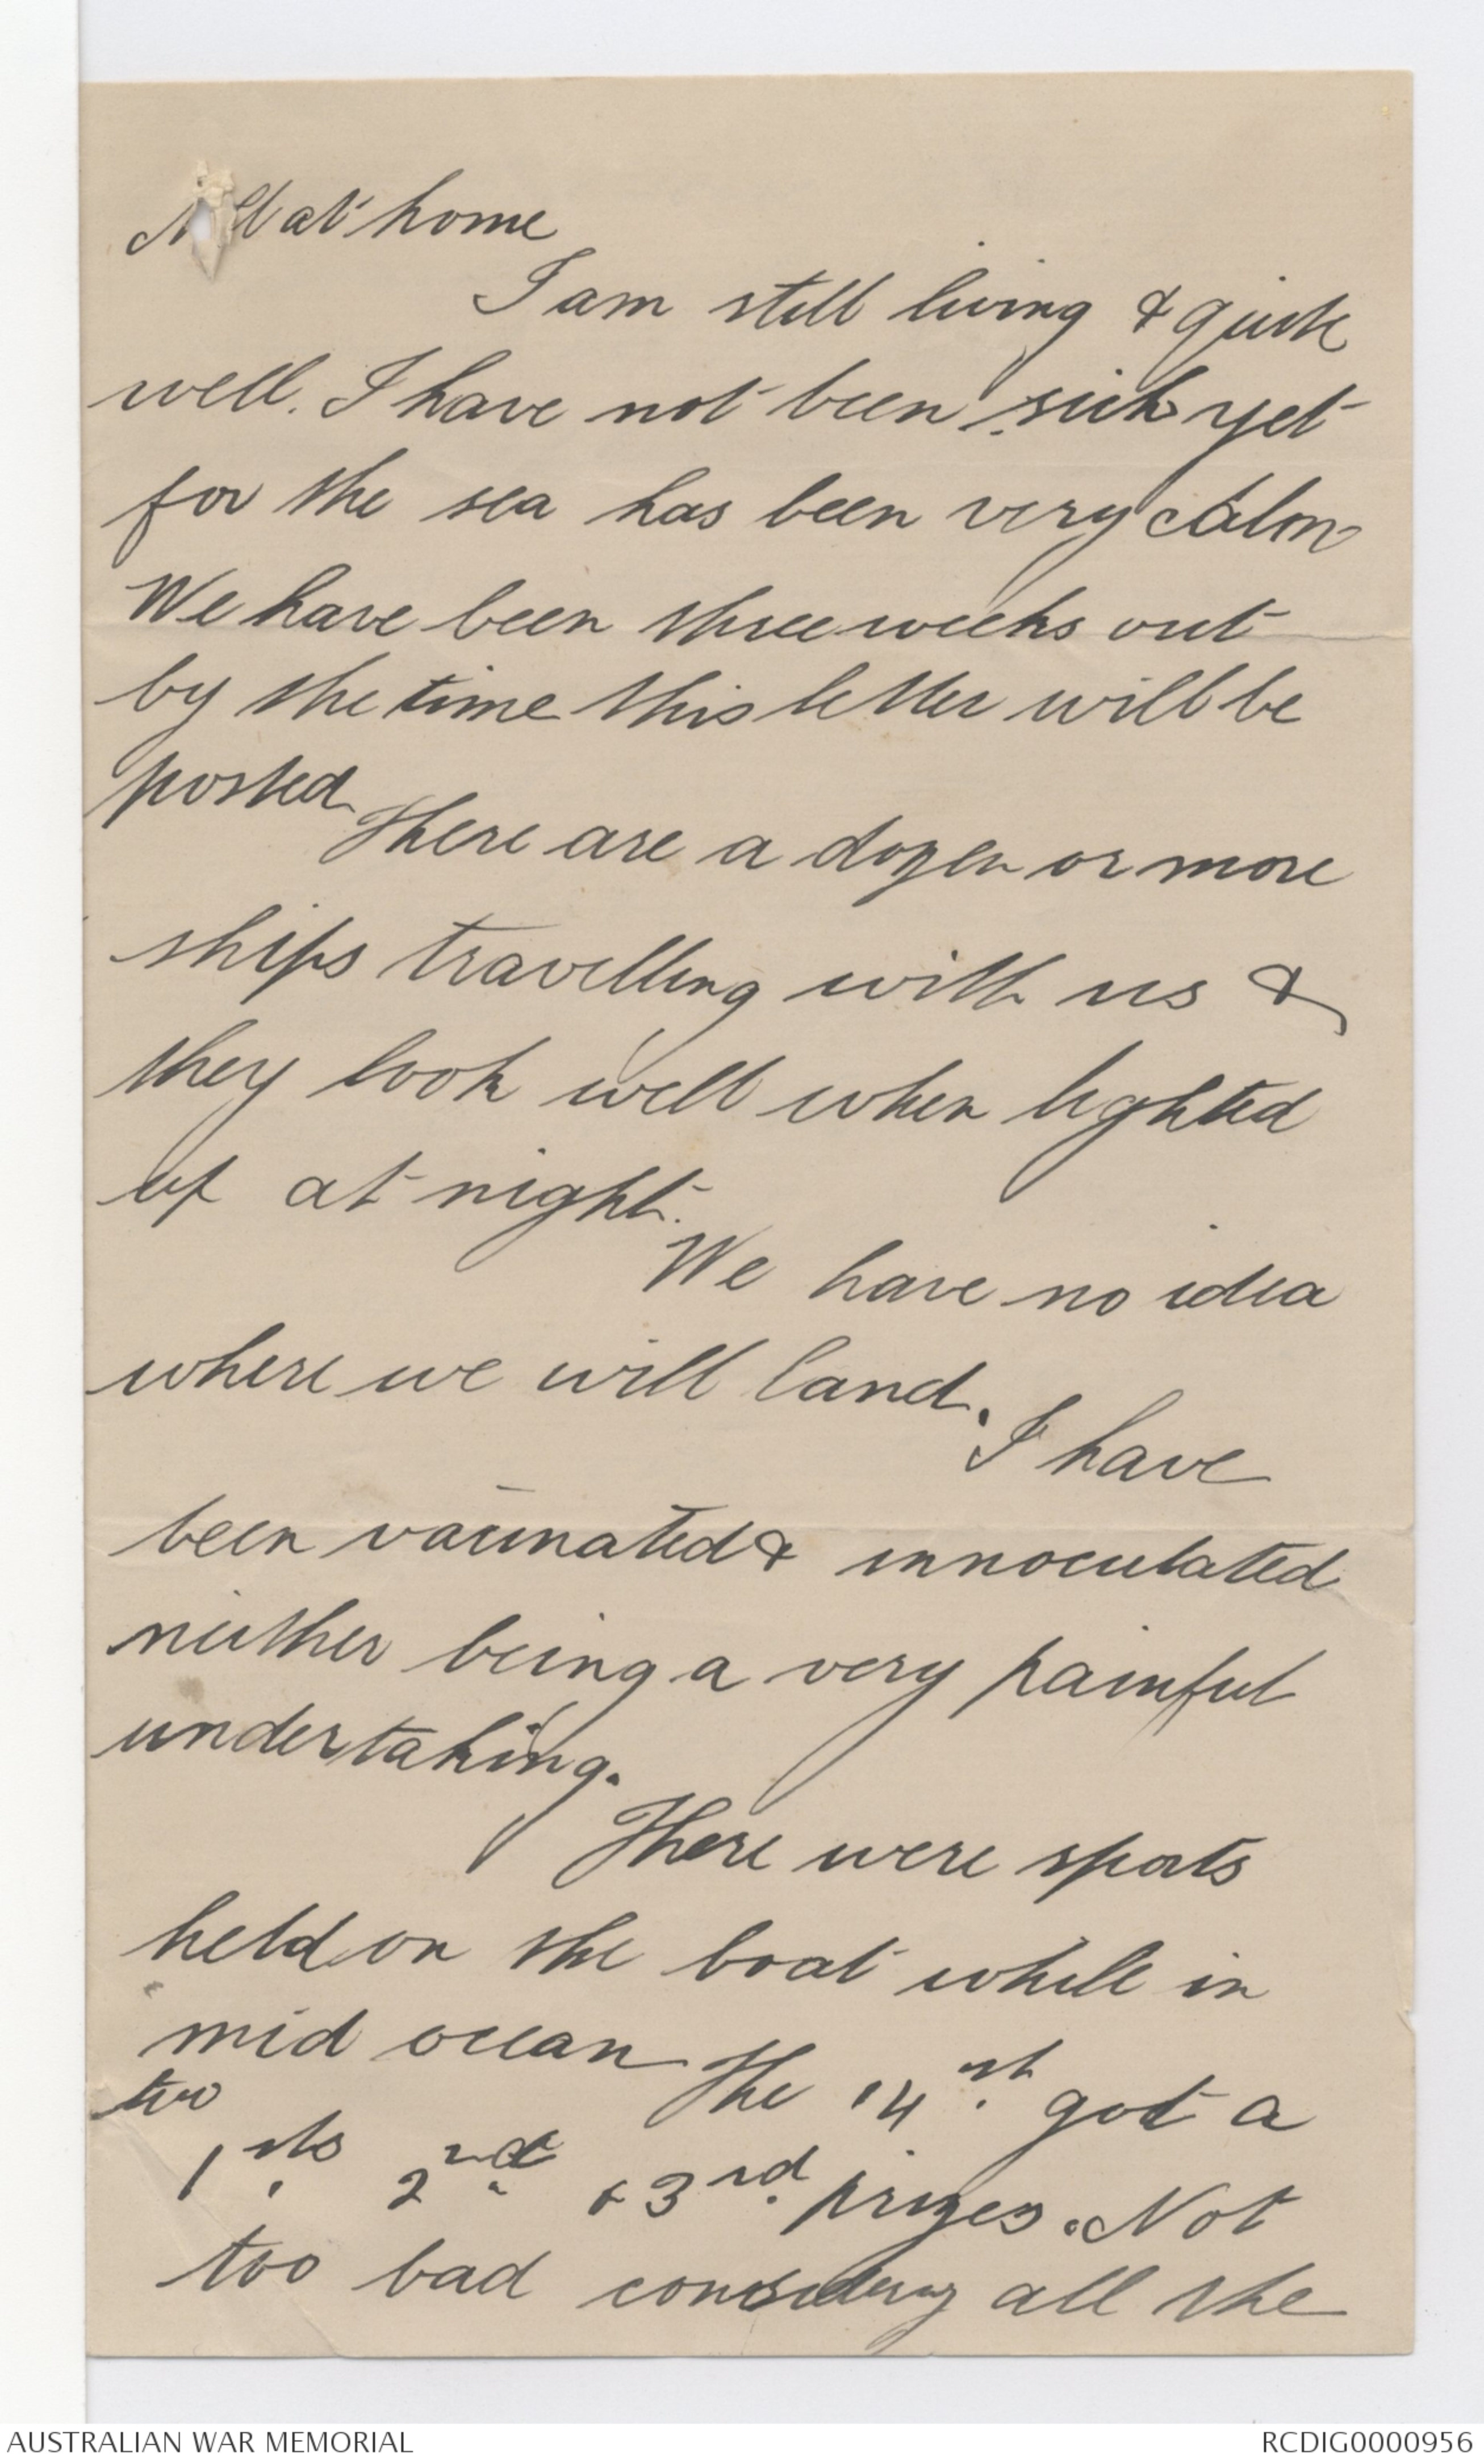 All at home
I am still living & quite
well. I have not been sick yet
for the sea has been very calm
We have been three weeks out
by the time this letter will be
posted
There are a dozen or more
ships travelling with us &
they look well when lighted
up at night.
We have no idea
where we will land.
I have
been vaccinated & innoculated
neither being a very painful
undertaking.
There were sports
held on the boat while in
mid ocean The 14th. got a
two
1sts. 2nd. & 3rd. prizes. Not
too bad considering all the
AUSTRALIAN WAR MEMORIAL
RCDIG0000956